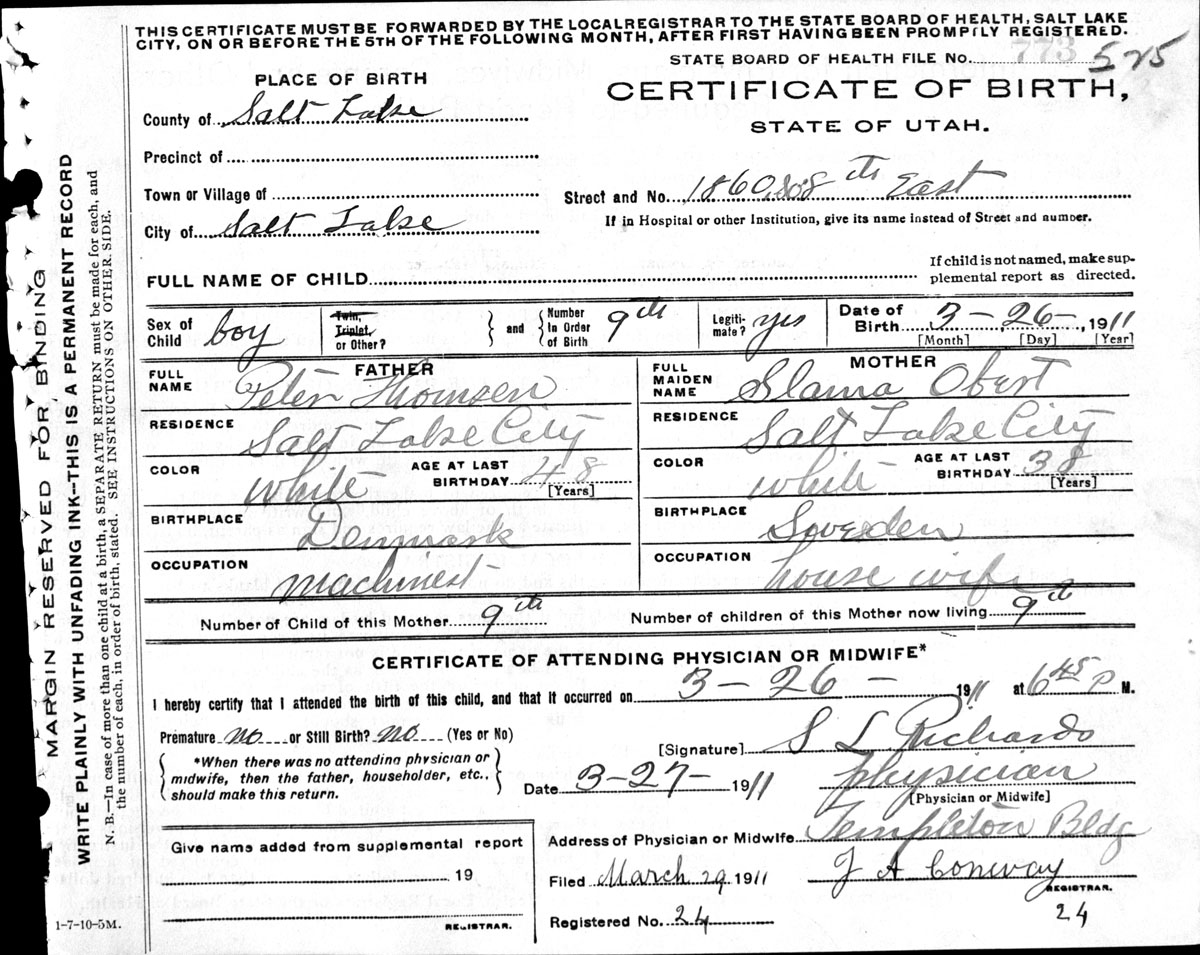 THIS CERTIFICATE MUST BE FORWARDED BY THE LOCAL REGISTRAR TO THE STATE BOARD OF HEALTH, SALT LAKE
CITY, ON OR BEFORE THE 5TH OF THE FOLLOWING MONTH, AFTER FIRST HAVING BEEN PROMPTLY REGISTERED.
STATE BOARD OF HEALTH FILE No. 773 525
PLACE OF BIRTH
CERTIFICATE OF BIRTH,
County of Salt Lake
STATE OF UTAH.
Precinct of
Town or Village of
Street and No. 1860 So 8th East
City of Salt Lake
If in Hospital or other Institution, give its name instead of Street and number.
FULL NAME OF CHILD
If child is not named, make sup-
plemental report as directed.
Sex of Child boy
Twin, Triplet, or Other?
and
Number In Order of Birth 9th
Legiti-mate? yes
Date of Birth 3-26-, 1911
[Month] [Day] [Year]
FATHER
FULL NAME Peter Thomsen
RESIDENCE Salt Lake City
COLOR White
AGE AT LAST BIRTHDAY 48
[Years]
BIRTHPLACE Denmark
OCCUPATION Machinest
MOTHER
FULL MAIDEN NAME Slama Obert
RESIDENCE Salt Lake City
COLOR White
AGE AT LAST BIRTHDAY 38
[Years]
BIRTHPLACE Sweden
OCCUPATION house wife
Number of Child of this Mother 9th
Number of children of this Mother now living 9th
CERTIFICATE OF ATTENDING PHYSICIAN OR MIDWIFE*
I hereby certify that I attended the birth of this child, and that it occurred on 3-26- 1911 at 6 45 P M.
Premature no or Still Birth? no (Yes or No)
[Signature] S L Richards
*When there was no attending physician or
midwife, then the father, householder, etc.,
should make this return.
Date 3-27- 1911
physician
[Physician or Midwife]
Give name added from supplemental report
19
REGISTRAR.
Address of Physician or Midwife Templeton Bldg
Filed March 29 1911
J A Conway
REGISTRAR.
Registered No. 24
24
1-7-10-5M.
MARGIN RESERVED FOR BINDING
WRITE PLAINLY WITH UNFADING INK--THIS IS A PERMANENT RECORD
N. B.--In case of more than one child at a birth, a SEPARATE RETURN must be made for each, and
the number of each, in order of birth, stated. SEE INSTRUCTIONS ON OTHER SIDE.